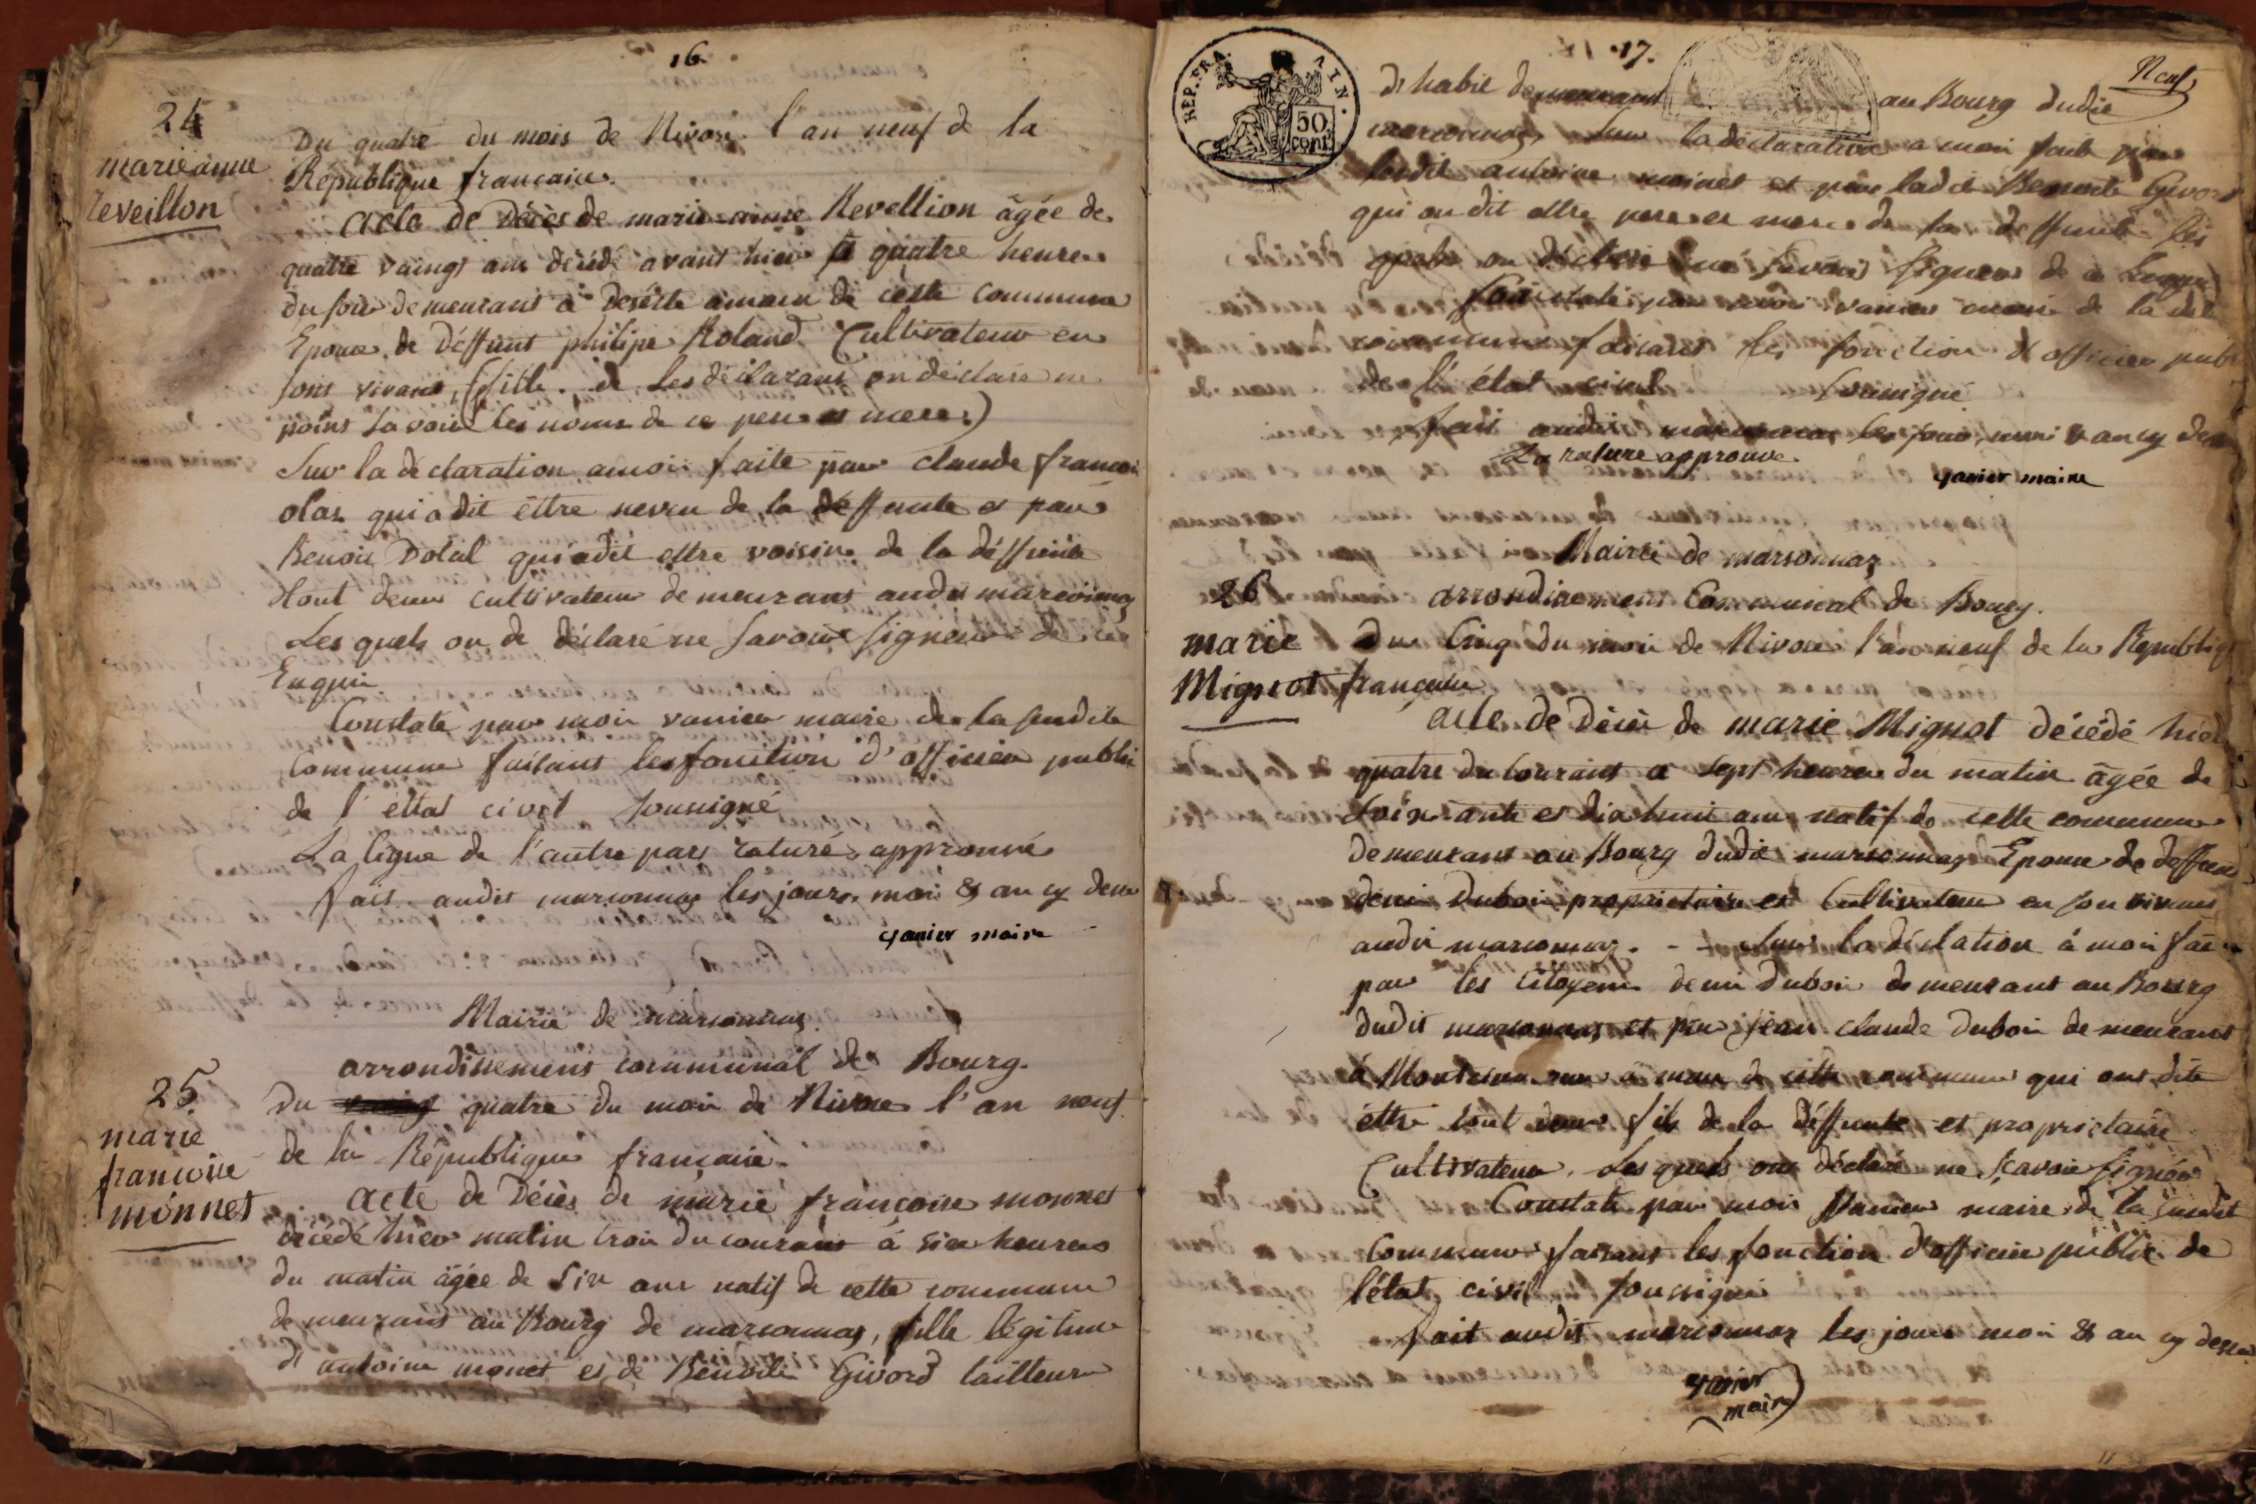 16.
24
marieanne
Reveillon
Du quatre du mois de Nivose l'an neuf de la
République française.
acte de Décès de marie-anne Revellion âgée de
quatre vaingt ans décédé avant hier a quatre heures
du soir demeurant à amau de cette commune
Epouse de Déffunt philipe Roland Cultivateur en
sons vivant, (fille de Les déclarant on déclare ne
points savoir les noms de ce pere et mere.)
Sur la déclaration a moi faite par claude françoi
olar qui a dit êttre neveu de la déffunte et par
Benoit Dotal qui a dit ettre voisin de la déffunte
tout deux cultivateur demeurant audit marsonnas
Les quels on de déclaré ne savoir signer de ce
Enquri
Constate par moi vanier maire de la susdite
Commune faisant les fonction d'officier public
de l'ettat civil soussigné
La ligne de l'autre part raturé approuvé
fait audit marsonnas les jours moi & an cy dessu
vanier maire
Mairie de marsonnas
arrondissement communal de Bourg.
25
marie
francoise
monnet
Du quatre du moi de Nivose l'an neuf
de la République française.
acte de Décès de marie françoise monnet
décédé hier matin troi du courant à six heures
du matin âgée de six ans natif de cette commune
demeurant au Bourg de marsonnas, fille légitime
d'antoine monet et de Benoite Givord tailleur
17.
Neuf
REP. FRA.
AIN.
50
cent.
d'habit demeurant au Bourg dudit
marsonnas, Sur la déclaration a moi faite par
ledit antoine moinet et par ladite Benoite Givord
qui on dit ettre pere et mere de la deffunte les
quels on déclaré ne savoir signer de ce
Constaté par moi vanier maire de la dite
commune faisant les fonction d'officier publi
de l'état civil soussigné
fait audit marsonnas les jour, moi & an cy dessu
La rature approuve
vanier maire
Mairie de marsonnas
arrondissement Communal de Bourg.
26
marie
Mignot
Du Cinq du moi de Nivose l'an neuf de la Républiq
française
acte de Décès de marie Mignot décédé hier
quatre du courant a sept heures du matin âgée de
soixante et dix huit ans natif de cette commune
demeurant au Bourg dudit marsonnas Epouse de deffunt
deni Duboi proprietaire et Cultivateur en son vivant
audit marsonnas. - - Sur la déclation à moi fai
par les Citoyens deni Duboi demeurant au Bourg
dudit marsonnas et par jean claude Duboi demeurant
à amau de cette commune qui ont dite
êttre tout deux fils de la déffunte et proprietaire
Cultivateur. Les quels ont déclaré ne sçavoir signér
Constaté par moi Vanier maire de la susdit
Commune faisant les fonction d'officier public de
l'état civil soussigné
fait audit marsonnas les jours moi & an cy dessu
vanier
maire